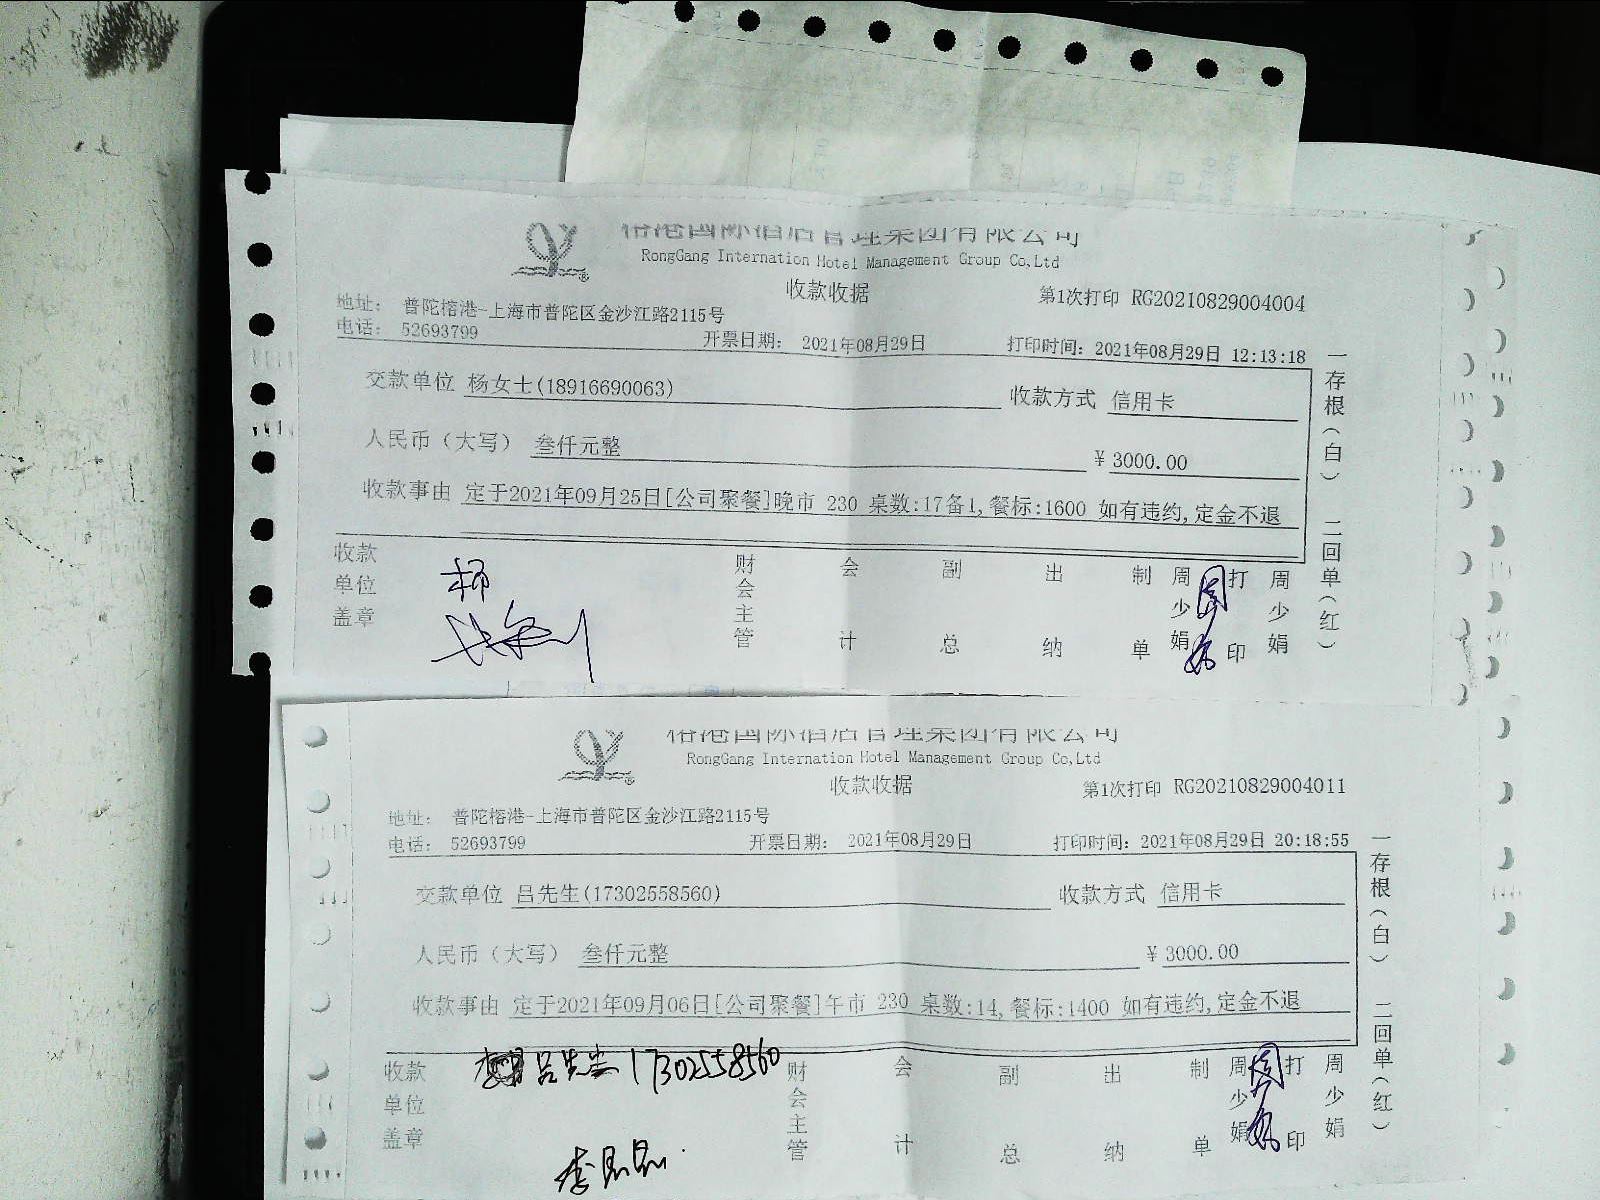 榕港国际酒店管理集团有限公司
RongGang Internation Hotel Management Group Co,Ltd
收款收据
第1次打印 RG20210829004004
地址： 普陀榕港-上海市普陀区金沙江路2115号
电话： 52693799
开票日期： 2021年08月29日
打印时间：2021年08月29日 12:13:18
交款单位 杨女士(18916690063)
收款方式 信用卡
人民币（大写） 叁仟元整
￥3000.00
收款事由 定于2021年09月25日[公司聚餐]晚市 230 桌数:17备1,餐标:1600 如有违约,定金不退
一存根（白） 二回单（红）
收款单位盖章
财会主管
会计
副总
出纳
制单
周少娟
打印
周少娟
榕港国际酒店管理集团有限公司
RongGang Internation Hotel Management Group Co,Ltd
收款收据
第1次打印 RG20210829004011
地址： 普陀榕港-上海市普陀区金沙江路2115号
电话： 52693799
开票日期： 2021年08月29日
打印时间：2021年08月29日 20:18:55
交款单位 吕先生(17302558560)
收款方式 信用卡
人民币（大写） 叁仟元整
￥3000.00
收款事由 定于2021年09月06日[公司聚餐]午市 230 桌数:14,餐标:1400 如有违约,定金不退
一存根（白） 二回单（红）
收款单位盖章
吕先生 17302558560
财会主管
会计
副总
出纳
制单
周少娟
打印
周少娟